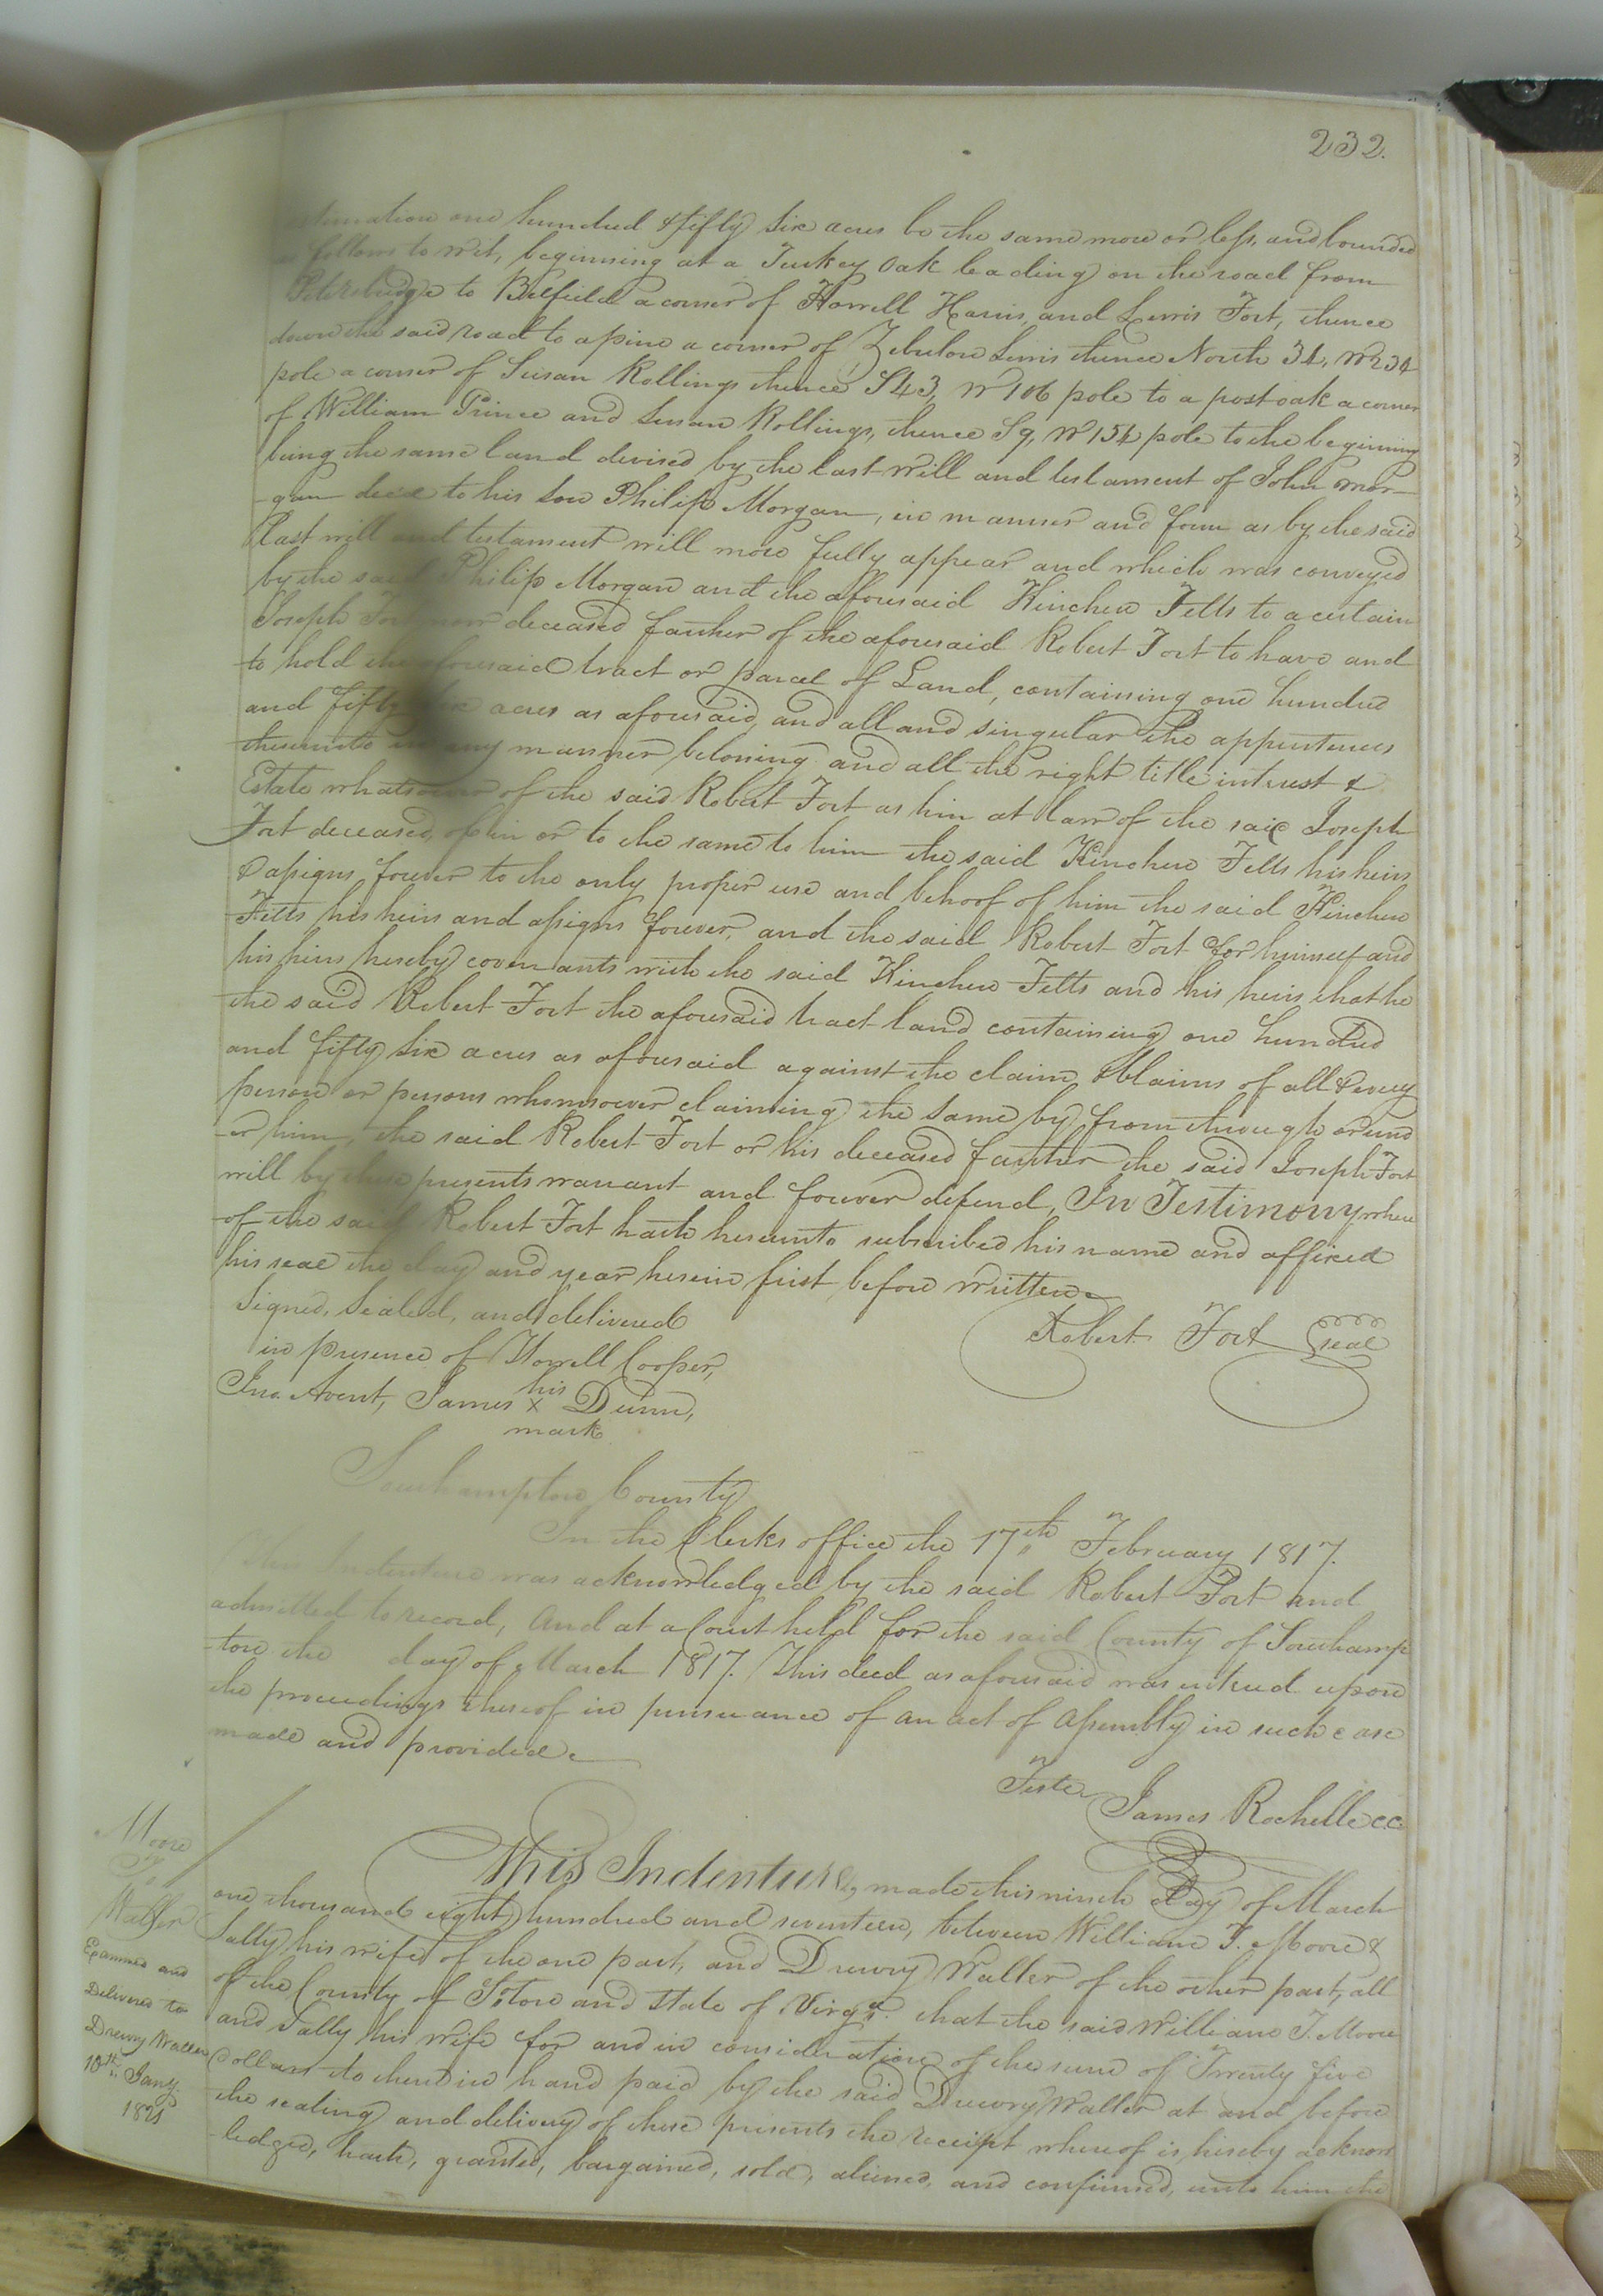 232.
estimation one hundred & fifty six acres be the same more or less, and bounded
as follows to wit, beginning at a Turkey oak leading on the road from
Petersburge to Belfield a corner of Howell Harris, and Lewis Fort, thence
down the said road to a pine a corner of Zebulon Lewis thence North 34, W 234
pole a corner of Susan Rollings thence S 43, W 106 pole to a post oak a corner
of William Prince and Susan Rollings, thence S 9, W 154 pole to the beginning
being the same land devised by the last will and testament of John Mor-
-gan decd to his son Philip Morgan, in manner and form as by the said
last will and testament will more fully appear and which was conveyed
by the said Philip Morgan and the aforesaid Kinchen Felts to a certain
Joseph Fort now deceased father of the aforesaid Robert Fort to have and
to hold the aforesaid tract or parcel of Land, containing one hundred
and fifty six acres as aforesaid, and all and singular the appertences
thereunto in any manner beloning and all the right title intrust &
Estate whatsoever of the said Robert Fort as him at law of the said Joseph
Fort deceased, of in or to the same to him the said Kinchen Felts his heirs
& assigns forever to the only proper use and behoof of him the said Kinchen
Felts his heirs and assigns forever, and the said Robert Fort for himself and
his heirs hereby covenants with the said Kinchen Felts and his heirs that he
the said Robert Fort the aforesaid tract land containing one hundred
and fifty six acres as aforesaid against the claim & claims of all & every
person or persons whomsoever claiming the same by from through or und
-er him, the said Robert Fort or his deceased father the said Joseph Fort
will by these presents warrant and forever defend, In Testimony where
of the said Robert Fort hath hereunto subscribed his name and affixed
his seal the day and year herein first before written
Signed, Sealed, and delivered
in presence of Howell Cooper,
Robert Fort seal
Jno. Avent, James his x mark Dunn,
Southampton County
In the Clerks office the 17th February 1817.
This Indenture was acknowledged by the said Robert Fort and
admitted to record, And at a Court held for the said County of Southamp
-ton the day of March 1817. This deed as aforesaid was entered upon
the proceedings thereof in pursuance of an act of Assembly in such case
made and provided
Teste
James Rochelle C.C.
Moore
To
Waller
Examined and
Delivered to
Drewry Waller
10th Jany.
1821
This Indenture, made this ninth Day of March
one thousand eight hundred and seventeen, between William T. Moore &
Sally his wife of the one part, and Drewry Waller of the other part, all
of the County of Soton and State of Virga. that the said William T. Moore
and Sally his wife for and in consideration of the sum of Twenty five
Dollars to them in hand paid by the said Drewry Waller at and before
the sealing and delivery of these presents the receipt whereof is hereby acknow
-ledged, hath, granted, bargained, sold, aliened, and confirmed, unto him the